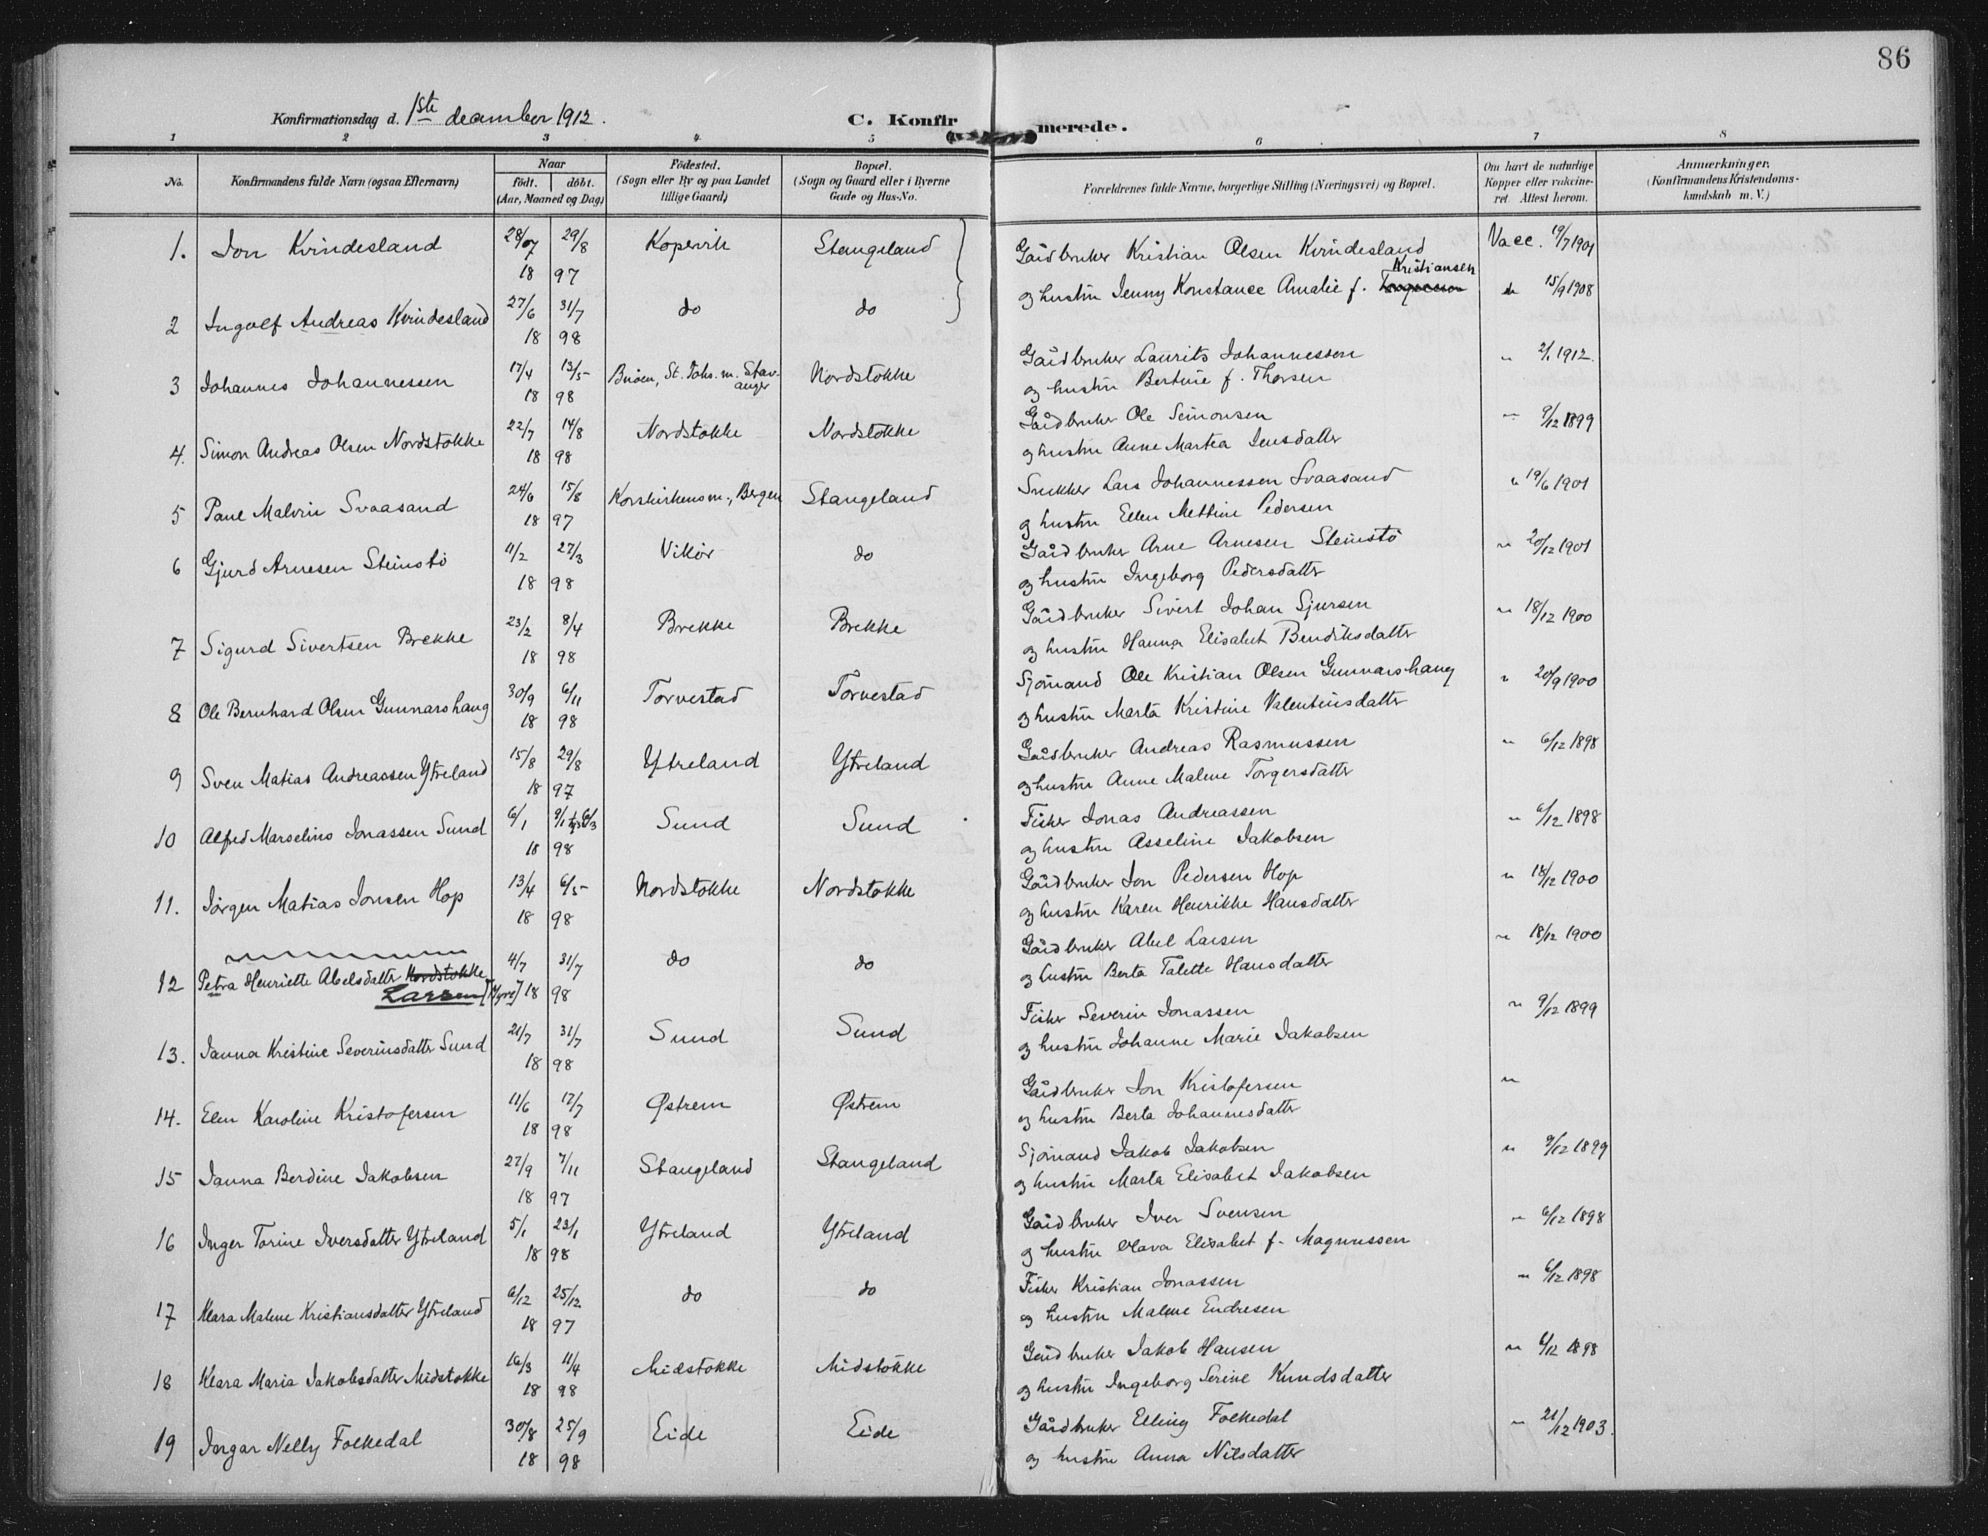 86
Konfirmationsdag d. 1ste december 1912.
C. Konfirmerede.
1 2 3 4 5 6 7 8
No. Konfirmandens fulde Navn (ogsaa Efternavn) Naar födt. döbt. (Aar, Maaned og Dag) Födested. (Sogn eller By og paa Landet tillige Gaard) Bopæl. (Sogn og Gaard eller i Byerne Gade og Hus-No. Forældrenes fulde Navne, borgerlige Stilling (Næringsvei) og Bopæl. Om havt de naturlige Kopper eller vakcineret. Attest herom. Anmærkninger. (Konfirmandens Kristendomskundskab m. V.)
1. Jon Kvindesland 28/07 29/8 Kopervik Stangeland Gårdbruker Kristian Olsen Kvindesland Vacc. 19/7 1901
18 97 og hustru Jenny Konstance Amalie f. Kristiansen do 15/9 1908
2 Ingolf Andreas Kvindesland 27/6 31/7 do do
18 98
3 Johannes Johannessen 17/4 13/5 Buøen, St. Johs. m. Stavanger Nordstokke Gårdbruker Laurits Johannessen " 2/1 1912.
18 98 og hustru Bertine f. Thorsen
4. Simon Andreas Olsen Nordstokke 22/7 14/8 Nordstokke Nordstokke Gårdbruker Ole Simonsen " 9/12 1899
18 98 og hustru Anne Martea Jensdatter
5 Paul Malvin Svaasand 24/6 15/8 Korskirkens m., Bergen Stangeland Snekker Lars Johannessen Svaasand " 19/6 1901
18 97 og hustru Ellen Mettine Pedersen
6 Gjurd Arnesen Steinstö 11/2 27/3 Vikör do Gårdbruker Arne Arnesen Steinstö " 20/12 1901
18 98 og hustru Ingeborg Pedersdatter
7 Sigurd Sivertsen Brekke 23/2 8/4 Brekke Brekke Gårdbruker Sivert Johan Sjursen " 18/12 1900
18 98 og hustru Hanna Elisabet Bendiksdatter
8 Ole Bernhard Olsen Gunnarshaug 30/9 6/11 Torvestad Torvestad Sjömand Ole Kristian Olsen Gunnarshaug " 20/9 1900
18 98 og hustru Marta Kristine Valentinsdatter
9 Sven Matias Andreassen Ytreland 15/8 29/8 Ytreland Ytreland Gårdbruker Andreas Rasmussen " 6/12 1898
18 97 og hustru Anne Malene Torgersdatter
10 Alfred Marselius Jonassen Sund 6/1 9/1 6/3 Sund Sund Fisker Jonas Andreassen " 6/12 1898
18 98 og hustru Asseline Jakobsen
11. Jörgen Matias Jonsen Hop 13/4 6/5 Nordstokke Nordstokke Gårdbruker Jon Pedersen Hop " 18/12 1900
18 98 og hustru Karen Henrikke Hansdatter
12 Petra Henriette Abelsdatter Nordstokke 4/7 31/7 do do Gårdbruker Abel Larsen " 18/12 1900
Larsen [Myre] 18 98 og hustru Berta Talette Hansdatter
13. Janna Kristine Severinsdatter Sund 21/7 31/7 Sund Sund Fisker Severin Jonassen " 9/12 1899
18 98 og hustru Johanne Marie Jakobsen
14. Elen Karoline Kristofersen 11/6 17/7 Østrem Østrem Gårdbruker Jon Kristofersen "
18 98 og hustru Berta Johannesdatter
15 Janna Berdine Jakobsen 27/9 7/11 Stangeland Stangeland Sjömand Jakob Jakobsen " 9/12 1899
18 97 og hustru Marta Elisabet Jakobsen
16 Inger Torine Iversdatter Ytreland 5/1 23/1 Ytreland Ytreland Gårdbruker Iver Svensen " 6/12 1898
18 98 og hustru Olava Elisabet f. Magnussen
17 Klara Malene Kristiansdatter Ytreland 6/12 25/12 do do Fisker Kristian Jonassen " 6/12 1898
18 97 og hustru Malene Endresen
18 Klara Maria Jakobsdatter Midstokke 16/3 11/4 Midstokke Midstokke Gårdbruker Jakob Hansen " 6/12 1898
18 98 og hustru Ingeborg Serine Knudsdatter
19 Ingar Nelly Folkedal 30/8 25/9 Eide Eide Gårdbruker Elling Folkedal " 21/12 1903.
18 98 og hustru Anna Nilsdatter